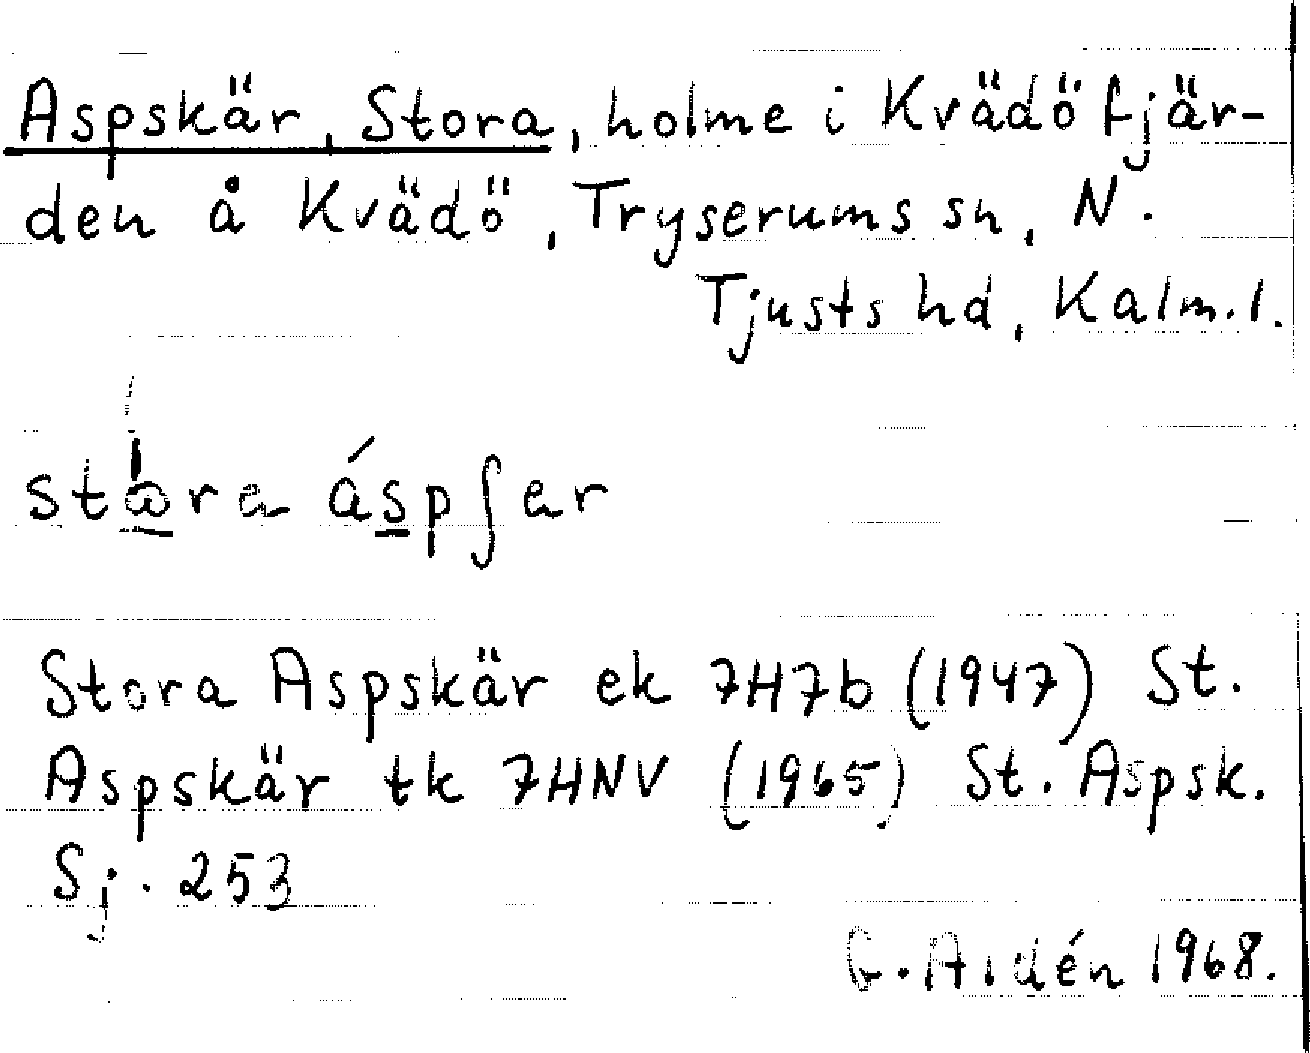 Aspskär, Stora, holme i Kvädöfjär-
den å Kvädö, Tryserums sn, N.
Tjusts hd, Kalm.l.
áspʃar
Stora Aspskär ek 7H7b (1947) St.
Aspskär tk 7HNV (1965) St. Aspsk.
Sj. 253
G. Aldén 1968.